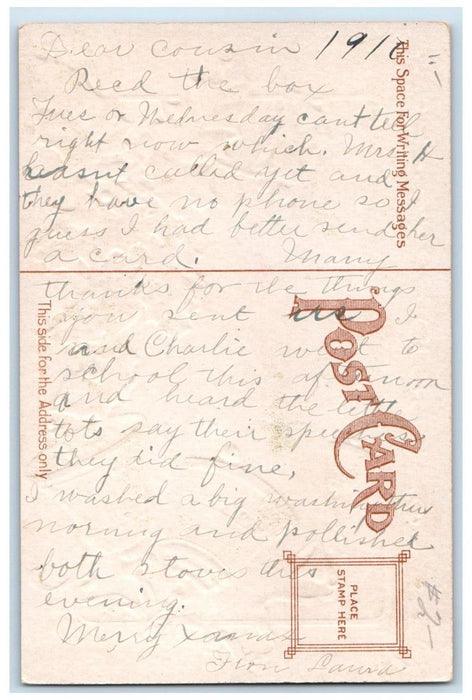 Dear Cousin 1910
Recd the box
Tues or Wednesday cant tell
right now which. Mrs. H
hasnt called yet and
they have no phone so I
guess I had better send her
a card. Many
thanks for the things
you sent us I
and Charlie went to
school this afternoon
and heard the little
tots say their speeches
they did fine,
I washed a big washing this
morning and pollished
both stoves this
evening.
Merry Xmas
From Laura
This Space For Writing Messages
POST CARD
This side for the Address only
PLACE
STAMP HERE
#2-